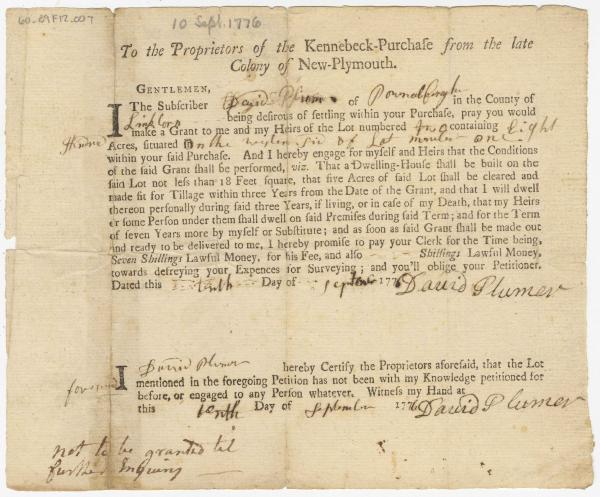 60-89F12.007
10 Sept. 1776
To the Proprietors of the Kennebeck-Purchase from the late
Colony of New-Plymouth.
GENTLEMEN,
I The Subscriber David Plumer of Pownalborough in the County of
Lincoln being desirous of settling within your Purchase, pray you would
make a Grant to me and my Heirs of the Lot numbered two containing Eight
Hundred Acres, situated on the of Lot number one
within your said Purchase. And I hereby engage for myself and Heirs that the Conditions
of the said Grant shall be performed, viz. That a Dwelling-House shall be built on the
said Lot not less than 18 Feet square, that five Acres of said Lot shall be cleared and
made fit for Tillage within three Years from the Date of the Grant, and that I will dwell
thereon personally during said three Years, if living, or in case of my Death, that my Heirs
or some Person under them shall dwell on said Premises during said Term; and for the Term
of seven Years more by myself or Substitute; and as soon as said Grant shall be made out
and ready to be delivered to me, I hereby promise to pay your Clerk for the Time being,
Seven Shillings Lawful Money, for his Fee, and also Shillings Lawful Money,
towards defreying your Expences for Surveying; and you'll oblige your Petitioner.
Dated this tenth Day of September 1776 David Plumer
I David Plumer hereby Certify the Proprietors aforesaid, that the Lot
mentioned in the foregoing Petition has not been with my Knowledge petitioned
for before, or engaged to any Person whatever. Witness my Hand at
this tenth Day of September 1776 David Plumer
not to be granted til
further Enquiry